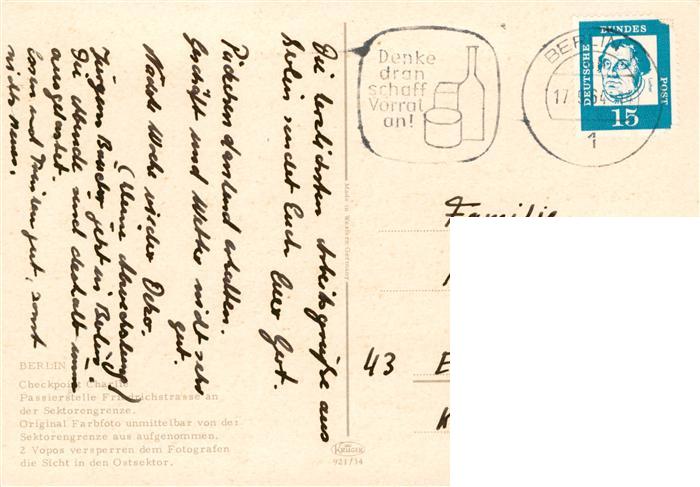 Die herzlichsten Arbeitsgrüße aus
Berlin sendet Euch Euer Gert.
Päckchen dankend erhalten.
Geschäft und Wetter nicht sehr
gut.
Nächste Woche wieder Deko.
(kleine Abwechslung)
Jürgen jetzt in Berlin
Die Abende sind deshalb
ausgelastet.
und gut, sonst
nichts neues.
BERLIN
Checkpoint Charlie
Passierstelle Friedrichstrasse an
der Sektorengrenze.
Original Farbfoto unmittelbar von der
Sektorengrenze aus aufgenommen.
2 Vopos versperren dem Fotografen
die Sicht in den Ostsektor.
Made in Western Germany
KRÜGER
921/34
Denke
dran
schaff
Vorrat
an!
BERLIN
17.
64
1
DEUTSCHE BUNDES POST
15
Familie
43 E